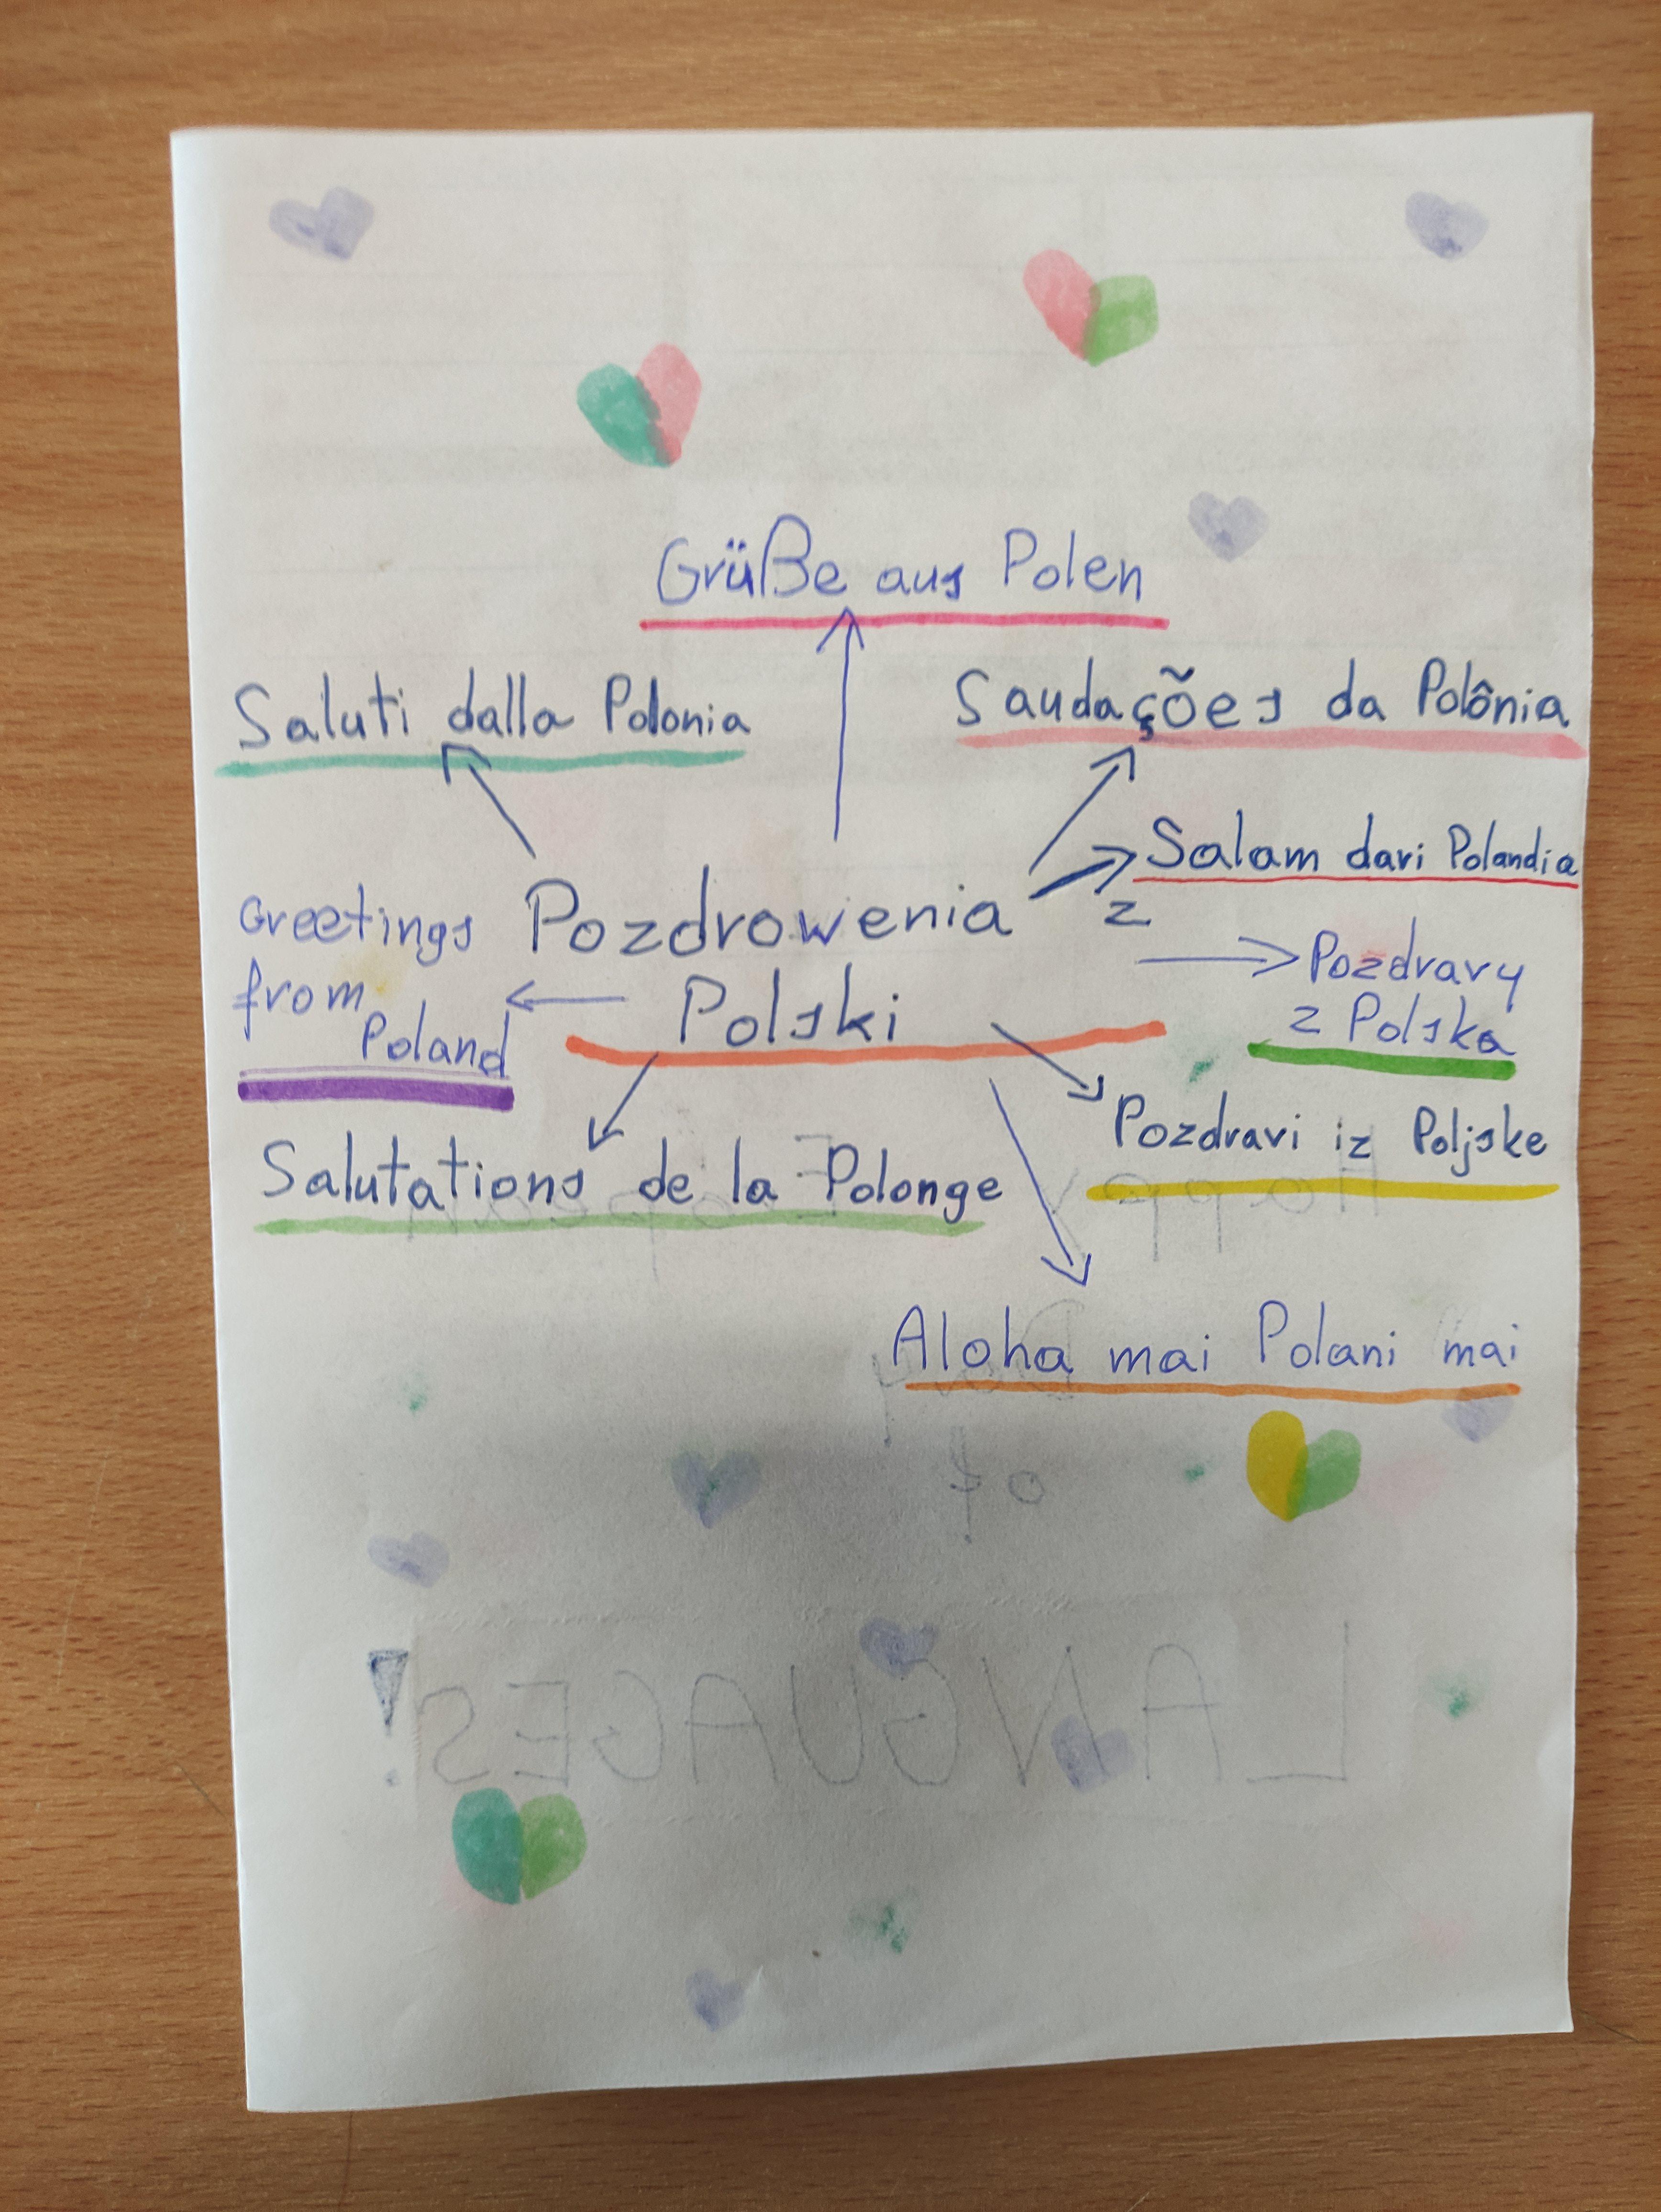 Grüße aus Polen
Saluti dalla Polonia
Saudações da Polônia
Salam dari Polandia
Pozdrowenia z
Polski
Greetings
from
Poland
Pozdravy
z Polska
Pozdravi iz Poljske
Salutations de la Polonge
Aloha mai Polani mai
Happy European
Day
of
LANGUAGES!